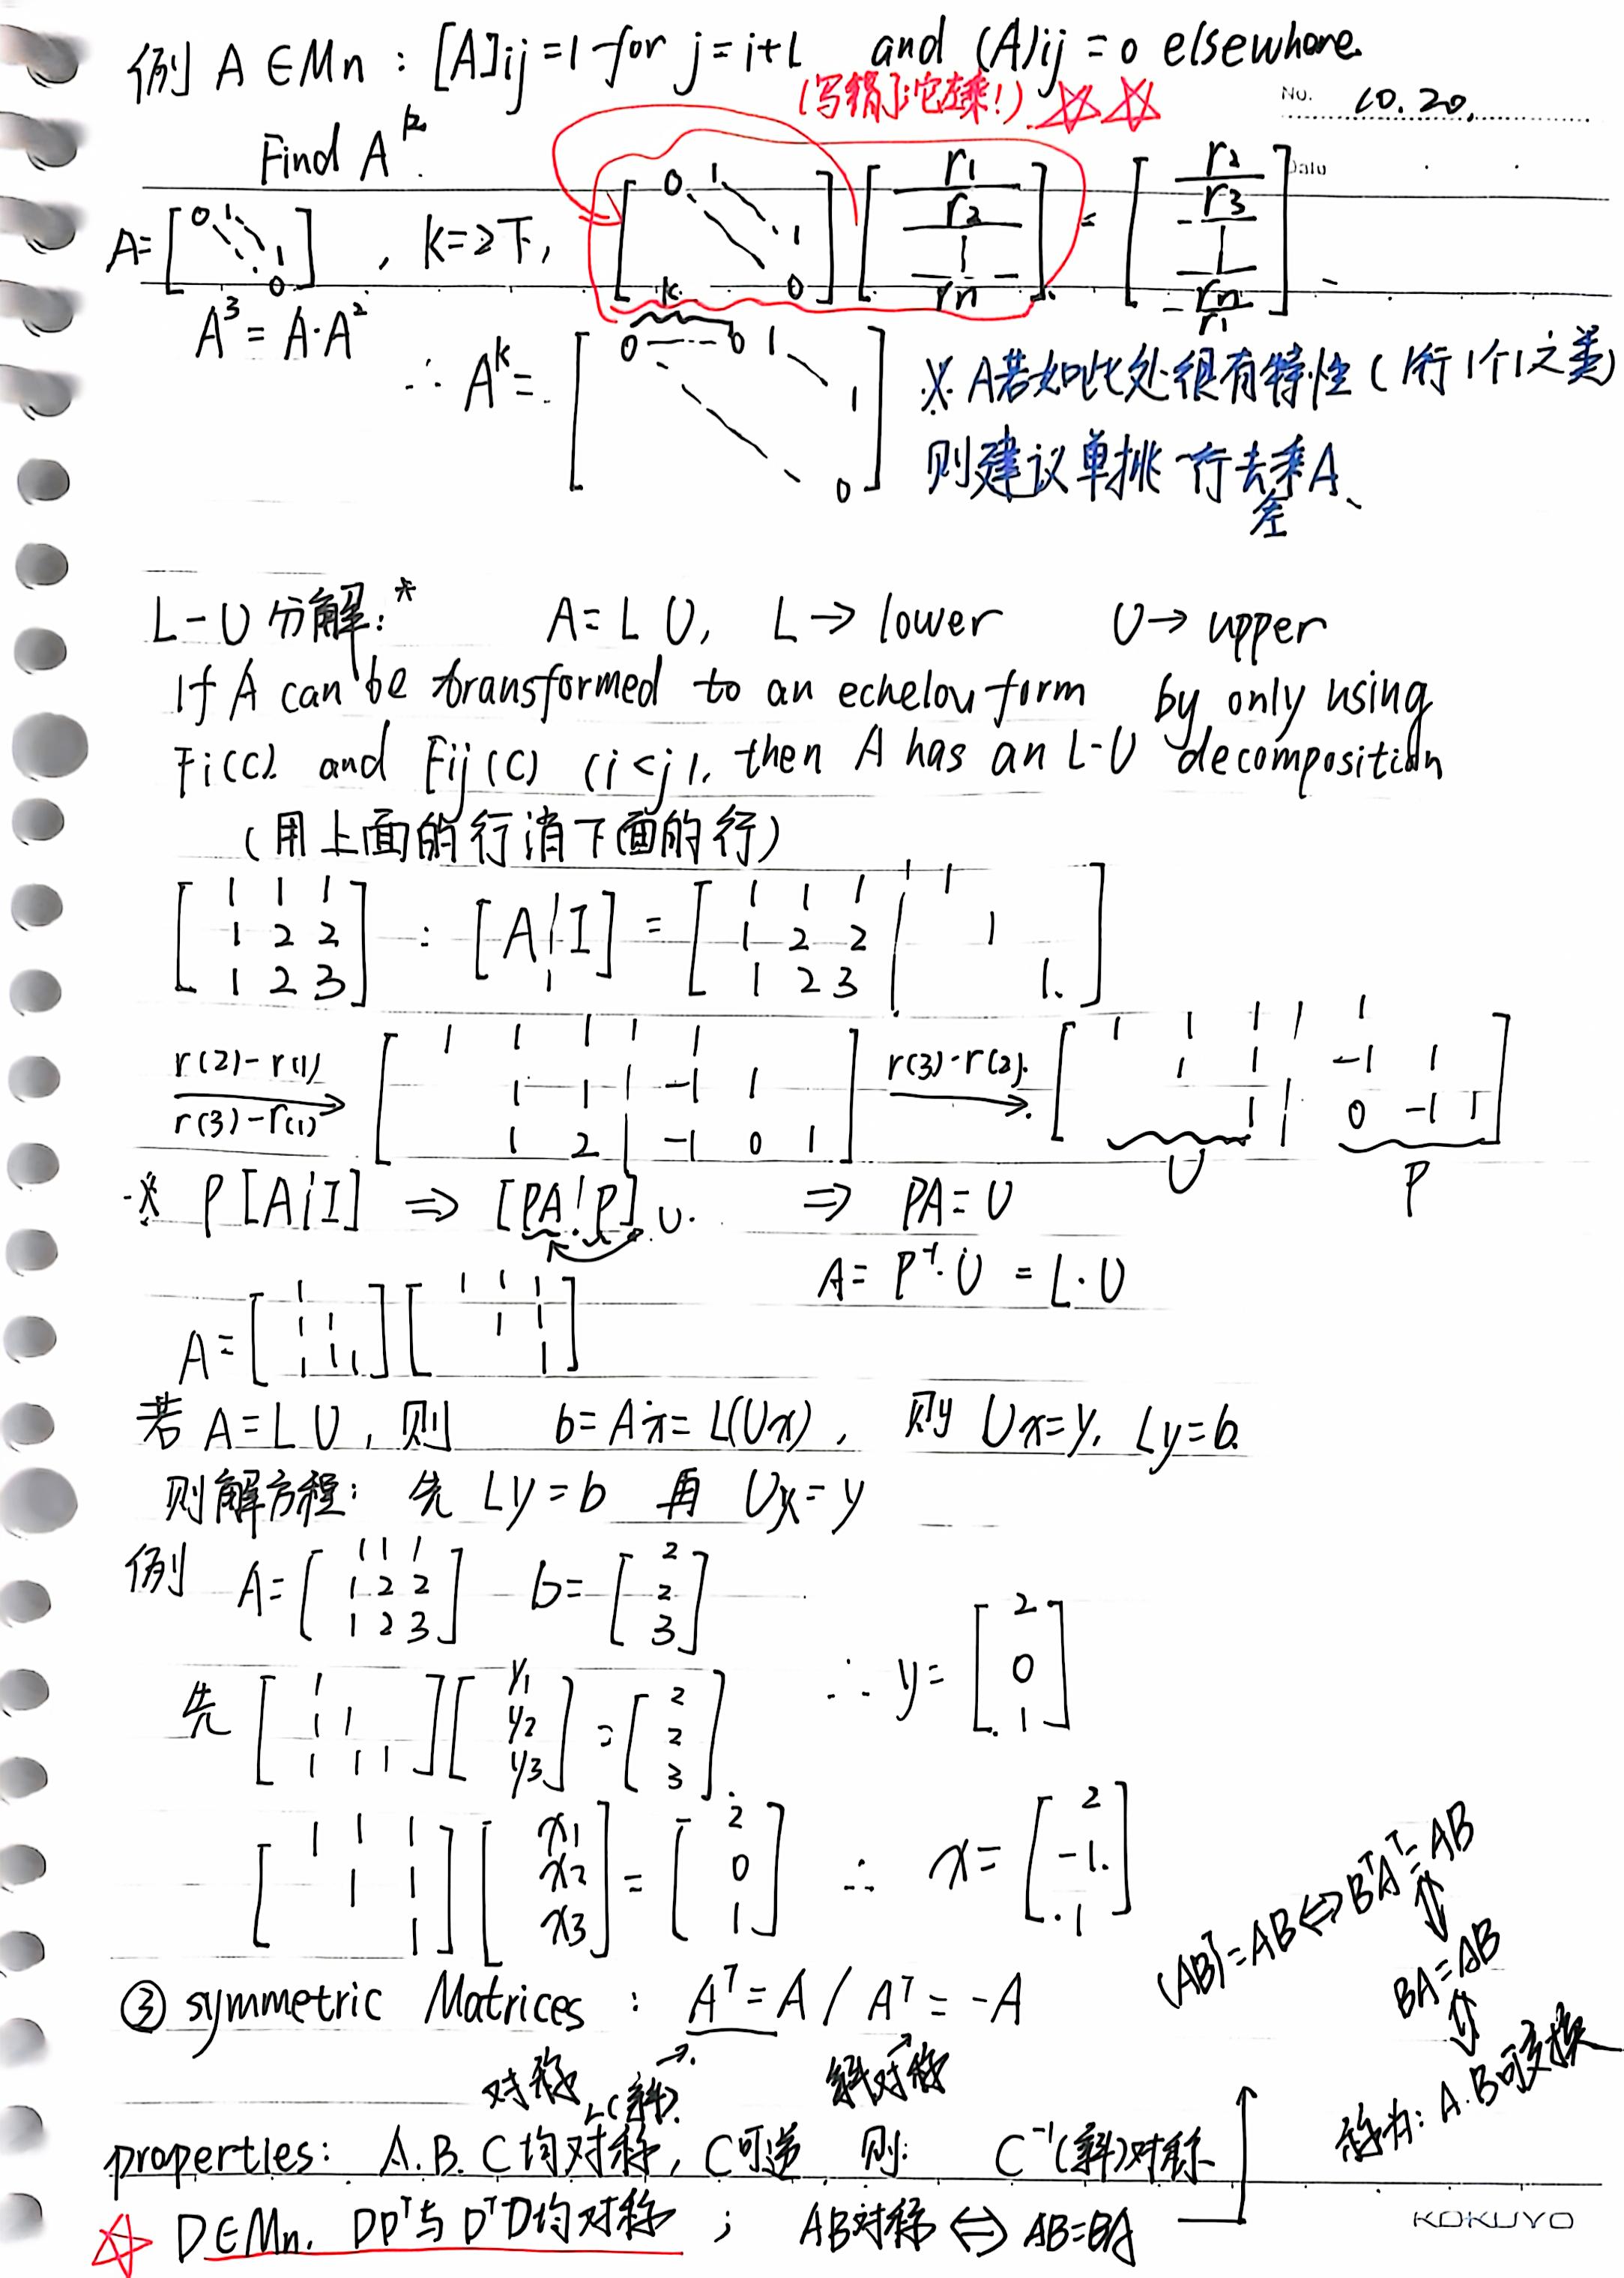 例 A∈Mn : [A]ij =1 for j=i+1 and (A)ij =0 elsewhere.
(写错了:它左乘!) ☆☆
No. 10.20.
Date
Find A^k.
A=[0 1 ⋱ 1 0] , k=2下, [0 1 ⋱ 1 0] [r1 r2 | rn] = [r2 r3 | rn r1]
A^3 = A·A^2
k
∴ A^k = [0 --- 0 1 ⋱ 1 0] ※ A若如此处很有特性 (1行1个1之类)
则建议单挑一行去乘A、
左
L-U 分解:* A=LU, L→lower U→upper
If A can be transformed to an echelon form by only using
Fi(C) and Eij(C) (i<j), then A has an L-U decomposition
(用上面的行消下面的行)
[1 1 1; 1 2 2; 1 2 3] : [A|I] = [1 1 1 | 1; 1 2 2 | 1; 1 2 3 | 1.]
r(2)-r(1) r(3)-r(1) → [1 1 1 | 1; 1 1 | -1 1; 1 2 | -1 0 1] r(3)-r(2) → [1 1 1 | 1; 1 1 -1 1; 1 | 0 -1 1]
U P
※ P[A|I] ⇒ [PA|P] U. ⇒ PA=U
A= P^-1·U = L·U
A=[1; 1 1; 1 1 1][1 1 1; 1 1; 1]
若 A=LU, 则 b=Ax=L(Ux), 则 Ux=y, Ly=b.
则解方程: 先 Ly=b 再 Ux=y
例 A=[1 1 1; 1 2 2; 1 2 3] b=[2; 2; 3]
先 [1; 1 1; 1 1 1][y1; y2; y3]=[2; 2; 3]. ∴ y=[2; 0; 1]
[1 1 1; 1 1; 1][x1; x2; x3]=[2; 0; 1] ∴ x=[2; -1; 1]
(AB)^T=AB⇔B^TA^T=AB
⇕
BA=AB
⇕
称为: A.B可交换
③ symmetric Matrices : A^T=A / A^T=-A
对称 斜对称
(斜)
properties: A.B.C均对称, C可逆 则: C^-1(斜)对称
☆ D∈Mn. DD^T与D^TD均对称 ; AB对称⇔AB=BA
KOKUYO